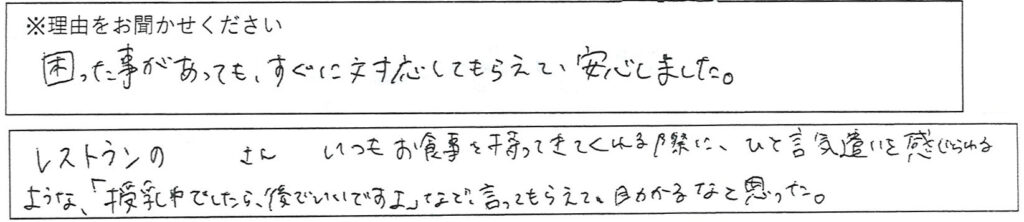 ※理由をお聞かせください
困った事があっても、すぐに対応してもらえて、安心しました。
レストランの さん いつもお食事を持ってきてくれる際に、ひと言気遣いを感じられる
ような、「授乳中でしたら、後でいいですよ」などで言ってもらえて、助かるなと思った。